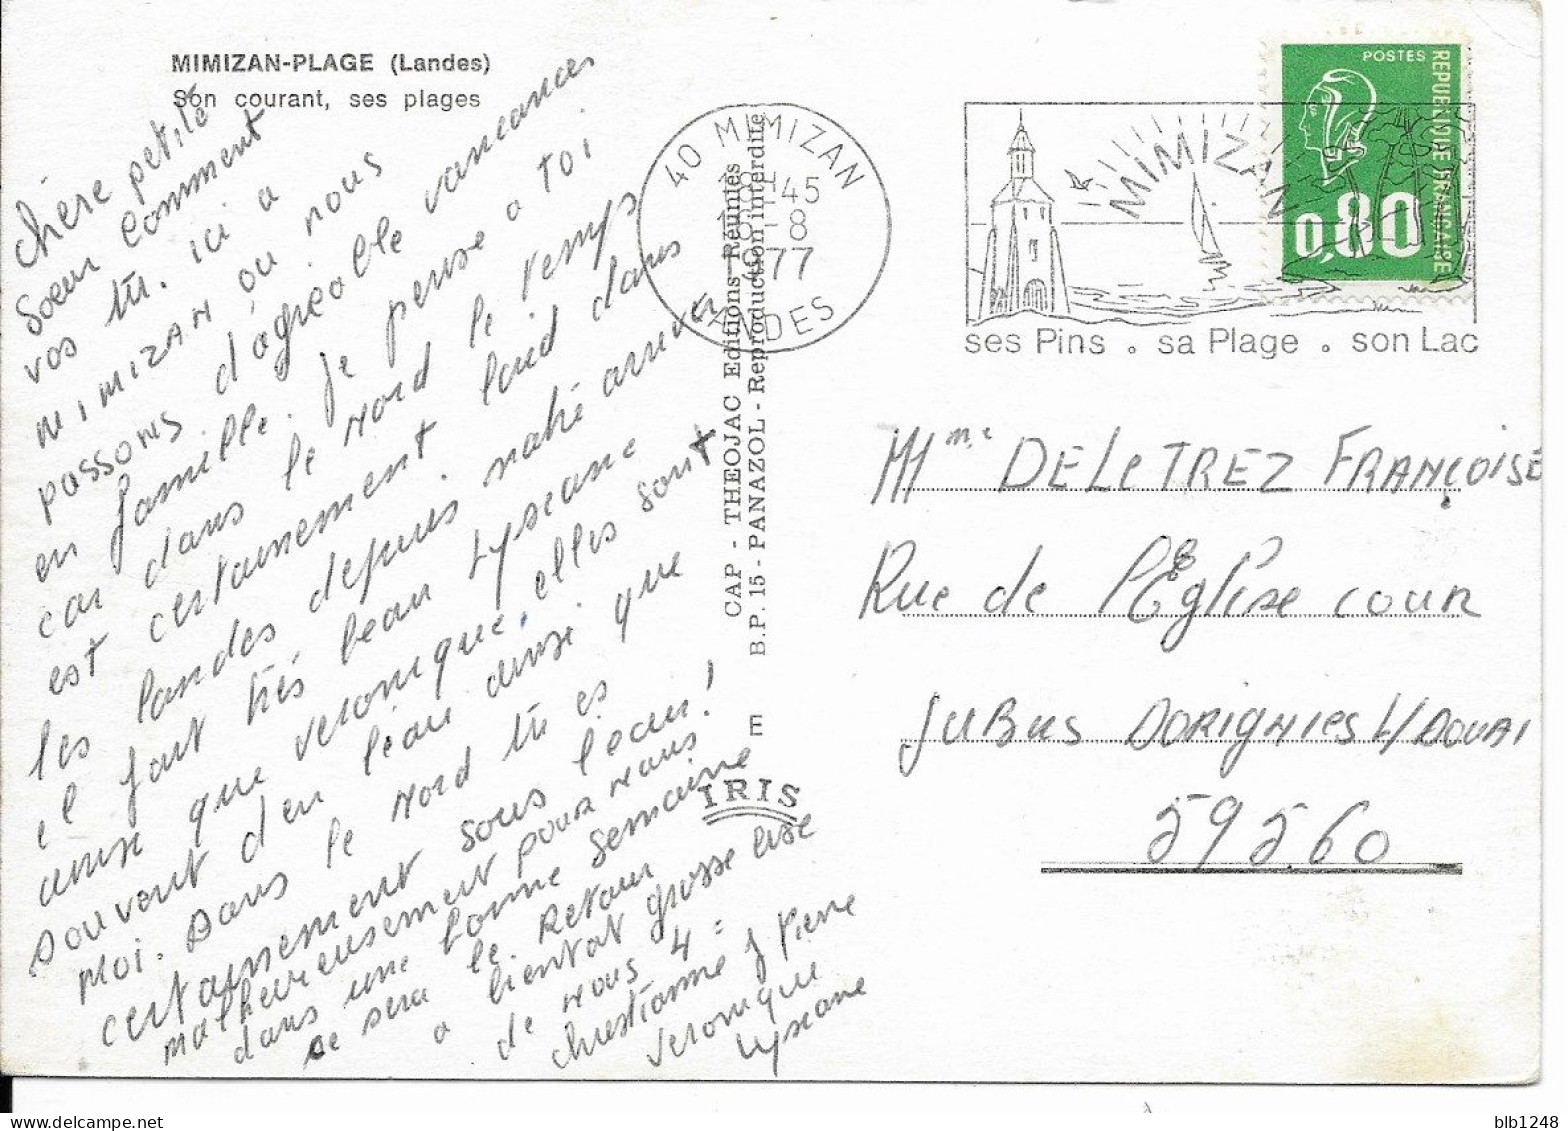 MIMIZAN-PLAGE (Landes)
Son courant, ses plages
chère petite
soeur comment
vas tu. ici a
MIMIZAN ou nous
passons d'agréable vancances
en famille. Je pense a toi
car dans le Nord le temps
est certainement lourd dans
les landes depuis nahé arriver
il fait très beau Lyseane
ainsi que veronique. elles sont
souvent den l'eau ainsi que
moi. Dans le Nord tu es
certainement sous l'eau!
malheureusement pour nous
dans une bonne semaine
se sera le Retour
a bientot grosse bise
de nous 4 =
christianne J Pierre
veronique
Lyseane
CAP - THEOJAC Editions Réunies
B.P. 15 - PANAZOL - Reproduction interdite
E
IRIS
40 MIMIZAN
45
8
1977
LANDES
MIMIZAN
ses Pins . sa Plage . son Lac
POSTES
REPUBLIQUE FRANÇAISE
0,80
Mme DELETREZ FRANÇOISE
Rue de l'Eglise cour
JuBus DORIGNIES L/DOUAI
59560
blb1248